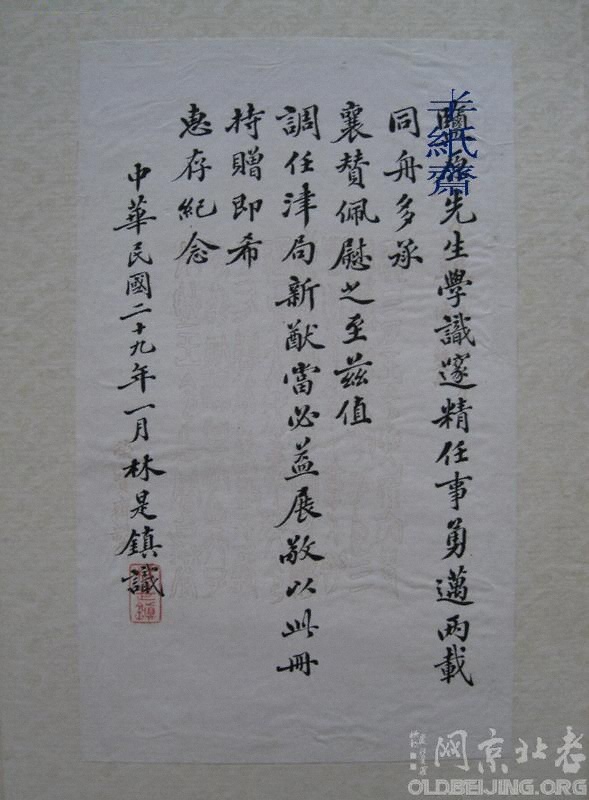 先生學識邃精任事勇邁兩載
同舟多承
襄贊佩慰之至茲值
調任津局新猷當必益展敬以此冊
持贈即希
惠存紀念
中華民國二十九年一月林是鎮識
老紙齋
老北京网
OLDBEIJING.ORG